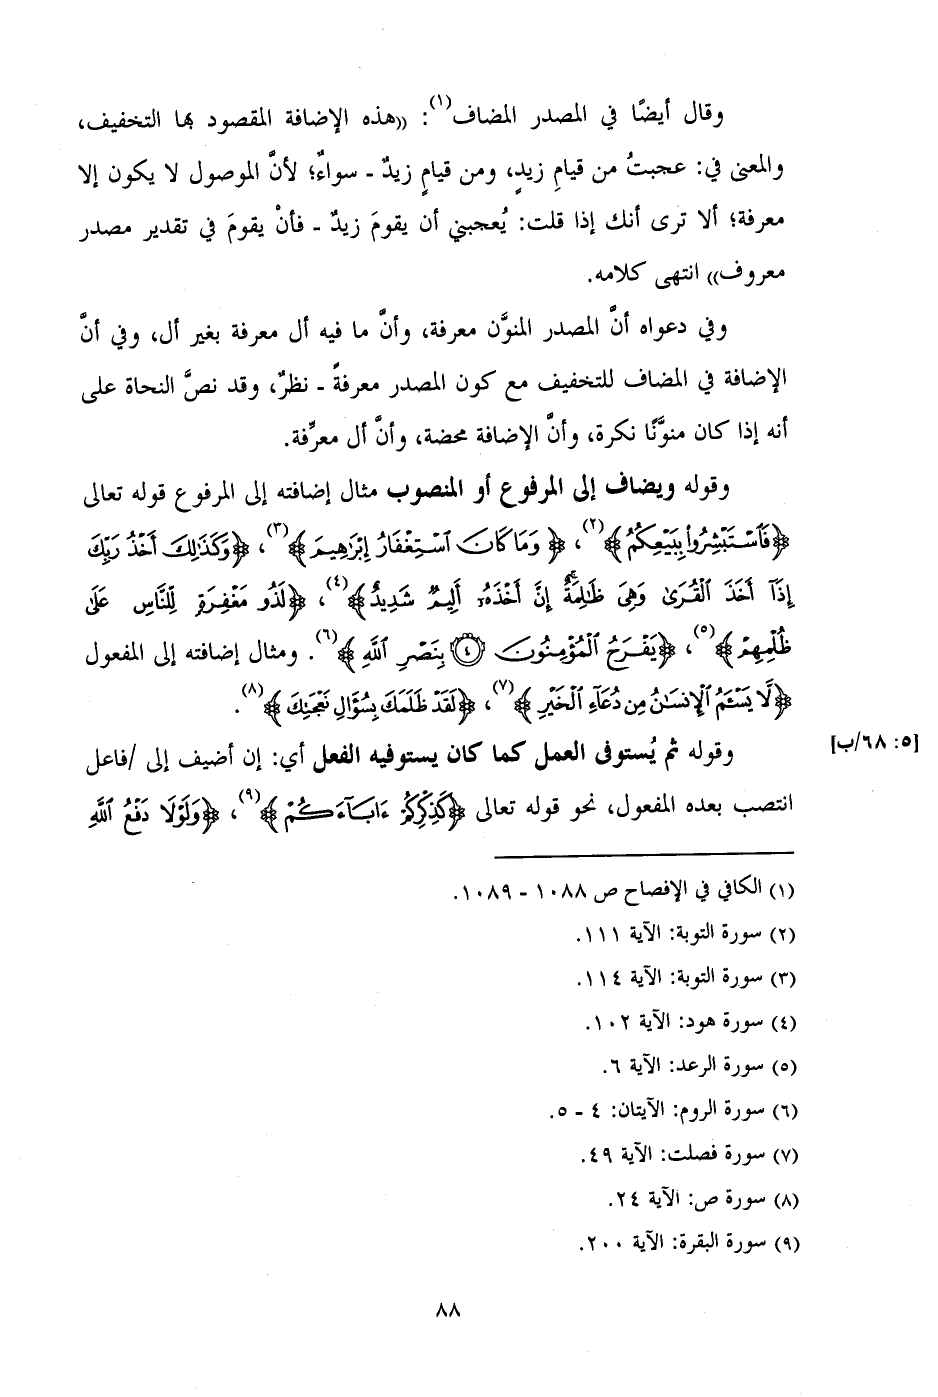 وقال أيضًا في المصدر المضاف(١): ((هذه الإضافة المقصود بها التخفيف،
والمعنى في: عجبتُ من قيامِ زيدٍ، ومن قيامٍ زيدٌ ـ سواءٌ؛ لأنَّ الموصول لا يكون إلا
معرفة؛ ألا ترى أنك إذا قلت: يُعجبني أن يقومَ زيدٌ ـ فأنْ يقومَ في تقدير مصدر
معروف)) انتهى كلامه.
وفي دعواه أنَّ المصدر المنوَّن معرفة، وأنَّ ما فيه أل معرفة بغير أل، وفي أنَّ
الإضافة في المضاف للتخفيف مع كون المصدر معرفةً ـ نظرٌ، وقد نصَّ النحاة على
أنه إذا كان منوَّنًا نكرة، وأنَّ الإضافة محضة، وأنَّ أل معرِّفة.
وقوله ويضاف إلى المرفوع أو المنصوب مثال إضافته إلى المرفوع قوله تعالى
﴿فَٱسْتَبْشِرُوا۟ بِبَيْعِكُمُ﴾(٢)، ﴿وَمَا كَانَ ٱسْتِغْفَارُ إِبْرَٰهِيمَ﴾(٣)، ﴿وَكَذَٰلِكَ أَخْذُ رَبِّكَ
إِذَآ أَخَذَ ٱلْقُرَىٰ وَهِىَ ظَٰلِمَةٌ إِنَّ أَخْذَهُۥٓ أَلِيمٌ شَدِيدٌ﴾(٤)، ﴿لَذُو مَغْفِرَةٍ لِّلنَّاسِ عَلَىٰ
ظُلْمِهِمْ﴾(٥)، ﴿يَفْرَحُ ٱلْمُؤْمِنُونَ ۝٤ بِنَصْرِ ٱللَّهِ﴾(٦). ومثال إضافته إلى المفعول
﴿لَّا يَسْـَٔمُ ٱلْإِنسَٰنُ مِن دُعَآءِ ٱلْخَيْرِ﴾(٧)، ﴿لَقَدْ ظَلَمَكَ بِسُؤَالِ نَعْجَتِكَ﴾(٨).
وقوله ثم يُستوفى العمل كما كان يستوفيه الفعل أي: إن أضيف إلى /فاعل [٥: ٦٨/ب]
انتصب بعده المفعول، نحو قوله تعالى ﴿كَذِكْرِكُمْ ءَابَآءَكُمْ﴾(٩)، ﴿وَلَوْلَا دَفْعُ ٱللَّهِ
(١) الكافي في الإفصاح ص ١٠٨٨ ـ ١٠٨٩.
(٢) سورة التوبة: الآية ١١١.
(٣) سورة التوبة: الآية ١١٤.
(٤) سورة هود: الآية ١٠٢.
(٥) سورة الرعد: الآية ٦.
(٦) سورة الروم: الآيتان: ٤ ـ ٥.
(٧) سورة فصلت: الآية ٤٩.
(٨) سورة ص: الآية ٢٤.
(٩) سورة البقرة: الآية ٢٠٠.
٨٨